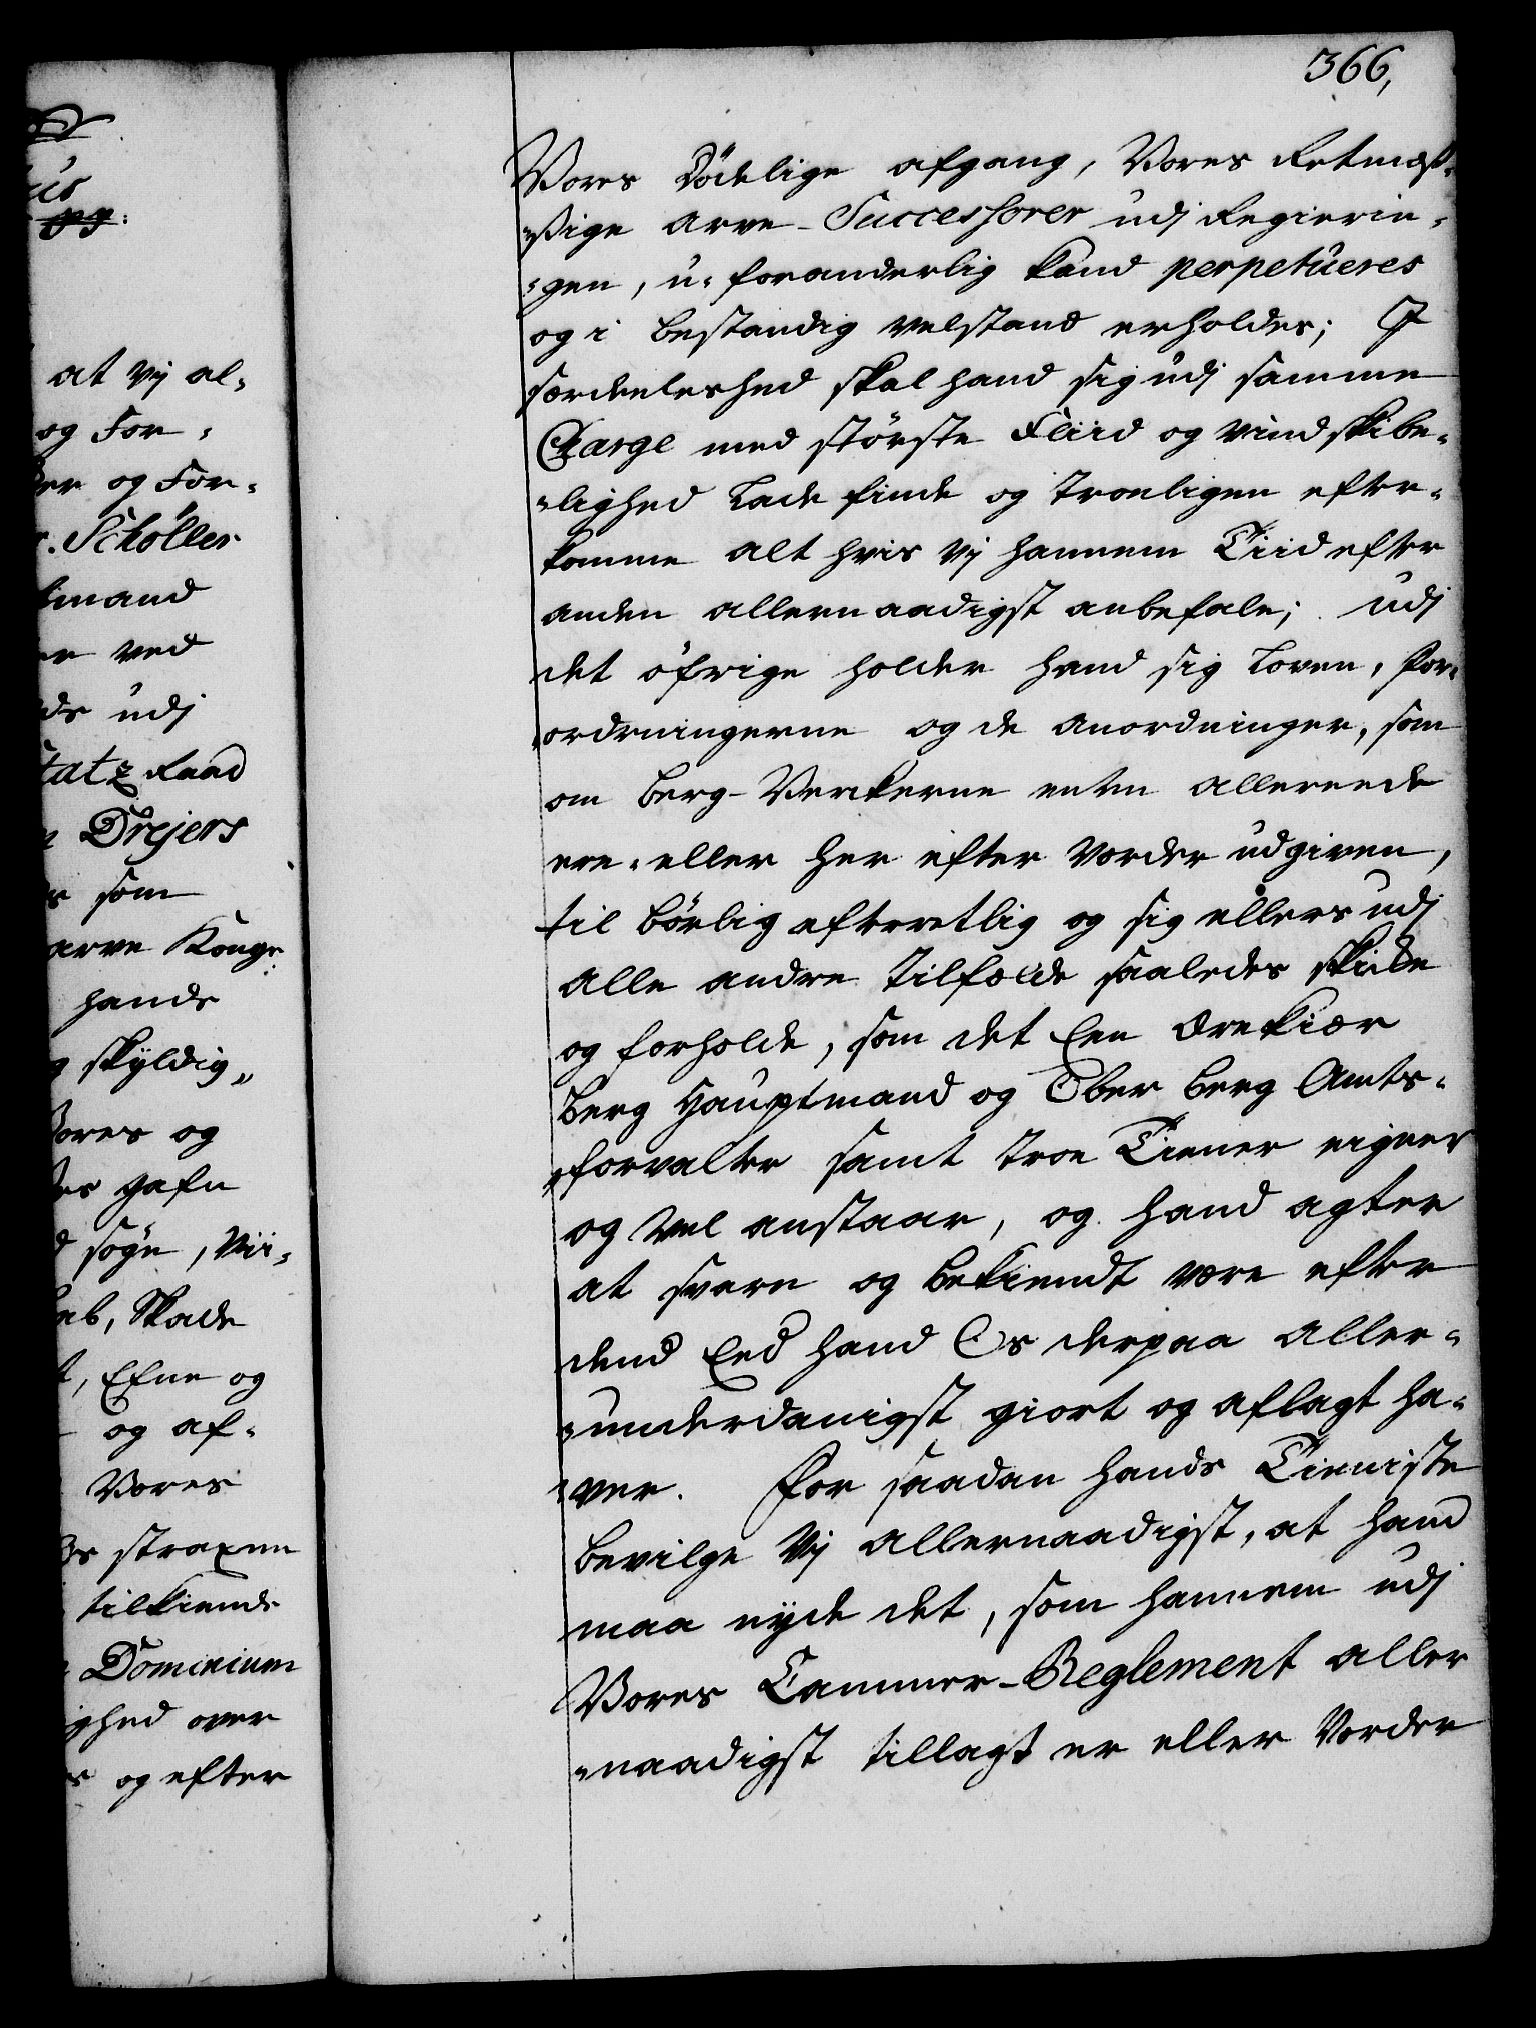 366,
Vores Dödelige afgang, Vores Retmæs-
"sige arve-Successorer udj Regierin-
"gen, u-foranderlig kand perpetueres
og i bestandig velstand erholdes; J
særdeleshed skal hand sig udj samme
Charge med störste Fliid og vindskibe-
"lighed Lade finde og troeligen efter-
komme alt hvis Vj hannem Tiid efter
anden allernaadigst anbefale; udj
det öfrige holder hand sig Loven, For-
"ordningerne og de anordninger, som
om Berg-Verkerne enten allereede
ere- eller her efter vorder udgiven,
til börlig efterretlig og sig ellers udj
alle andre tilfælde saaledes skicke
og forholde, som det Een Ærekiær
Berg Hauptmand og Ober Berg Amts-
"forvalter samt troe Tiener eigner
og vel anstaar, og hand agter
at svare og bekiendt være efter
dend Eed hand Os derpaa aller-
"underdanigst giort og aflagt ha-
"ver. For saadan hands Tieniste
bevilge Vj allernaadigst, at hand
maa nyde det, som hannem udj
Vores Cammer-Reglement aller
"naadigst tillagt er eller vorder
at Vj al-
og For-
er og For-
. Schöller
mand
er ved
ds udj
tatz Raad
Drejers
som
arve Konge
hands
skyldig"
Vores og
es gafn
söge, Vii-
ab, Skade
, Efne og
og af-
Vores
straxen
tilkiende
Dominium
ighed over
og efter